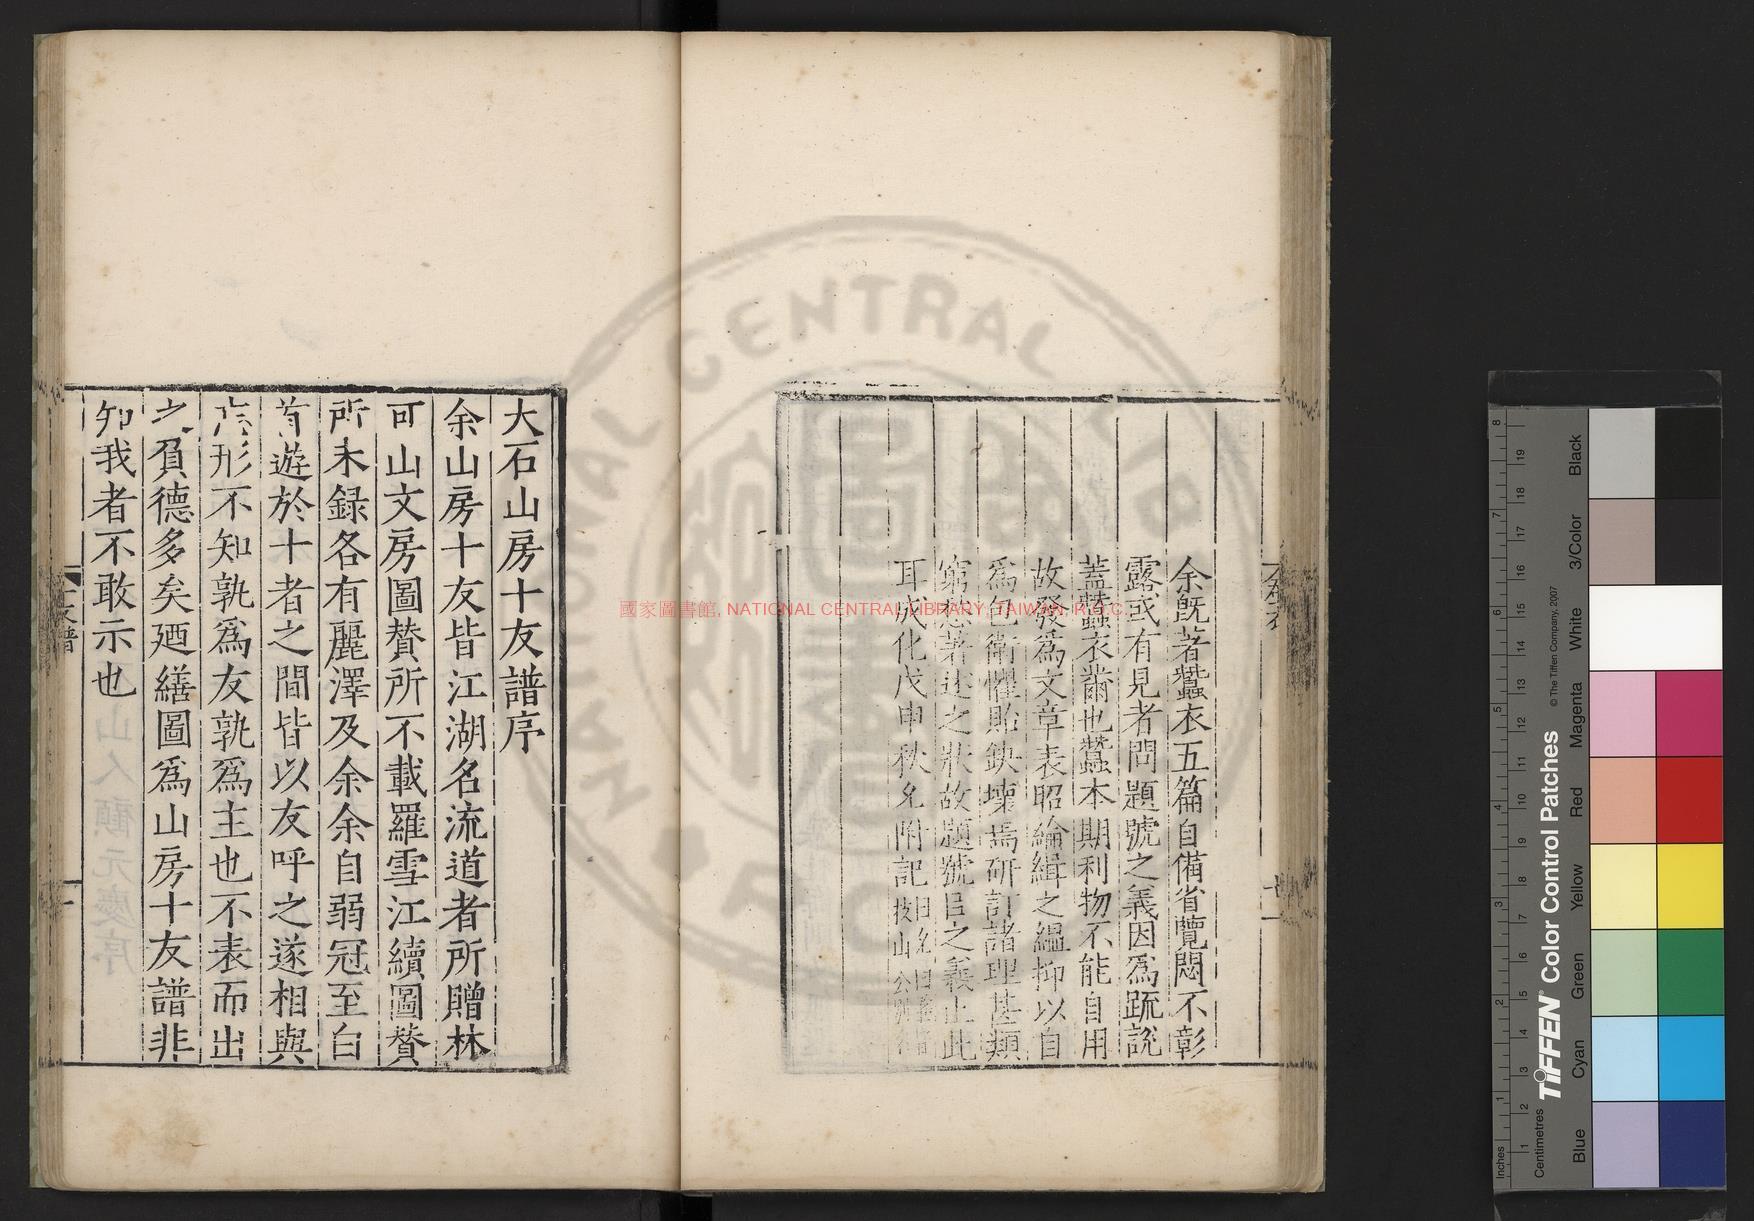 余旣著蠶衣五篇自備省覽悶不彰
露或有見者問題號之義因爲䟽說
蓋蠶衣繭也蠶本期利物不能自用
故發爲文章表昭綸緝之緼抑以自
爲包衛懼貽鈌壞焉研訂諸理甚類
窮愁著述之狀故題號臣之義止此
耳成化戊申秋允附記
大石山房十友譜序
余山房十友皆江湖名流道者所贈林
可山文房圖賛所不載羅雪江續圖賛
所未録各有麗澤及余余自弱冠至白
首遊於十者之間皆以友呼之遂相與
忘形不知孰爲友孰爲主也不表而出
之負德多矣廼繕圖爲山房十友譜非
知我者不敢示也
友譜
國家圖書館, NATIONAL CENTRAL LIBRARY, TAIWAN, R.O.C.
NATIONAL CENTRAL
TIFFEN® Color Control Patches
© The Tiffen Company, 2007
Inches
Centimetres
Blue
Cyan
Green
Yellow
Red
Magenta
White
3/Color
Black